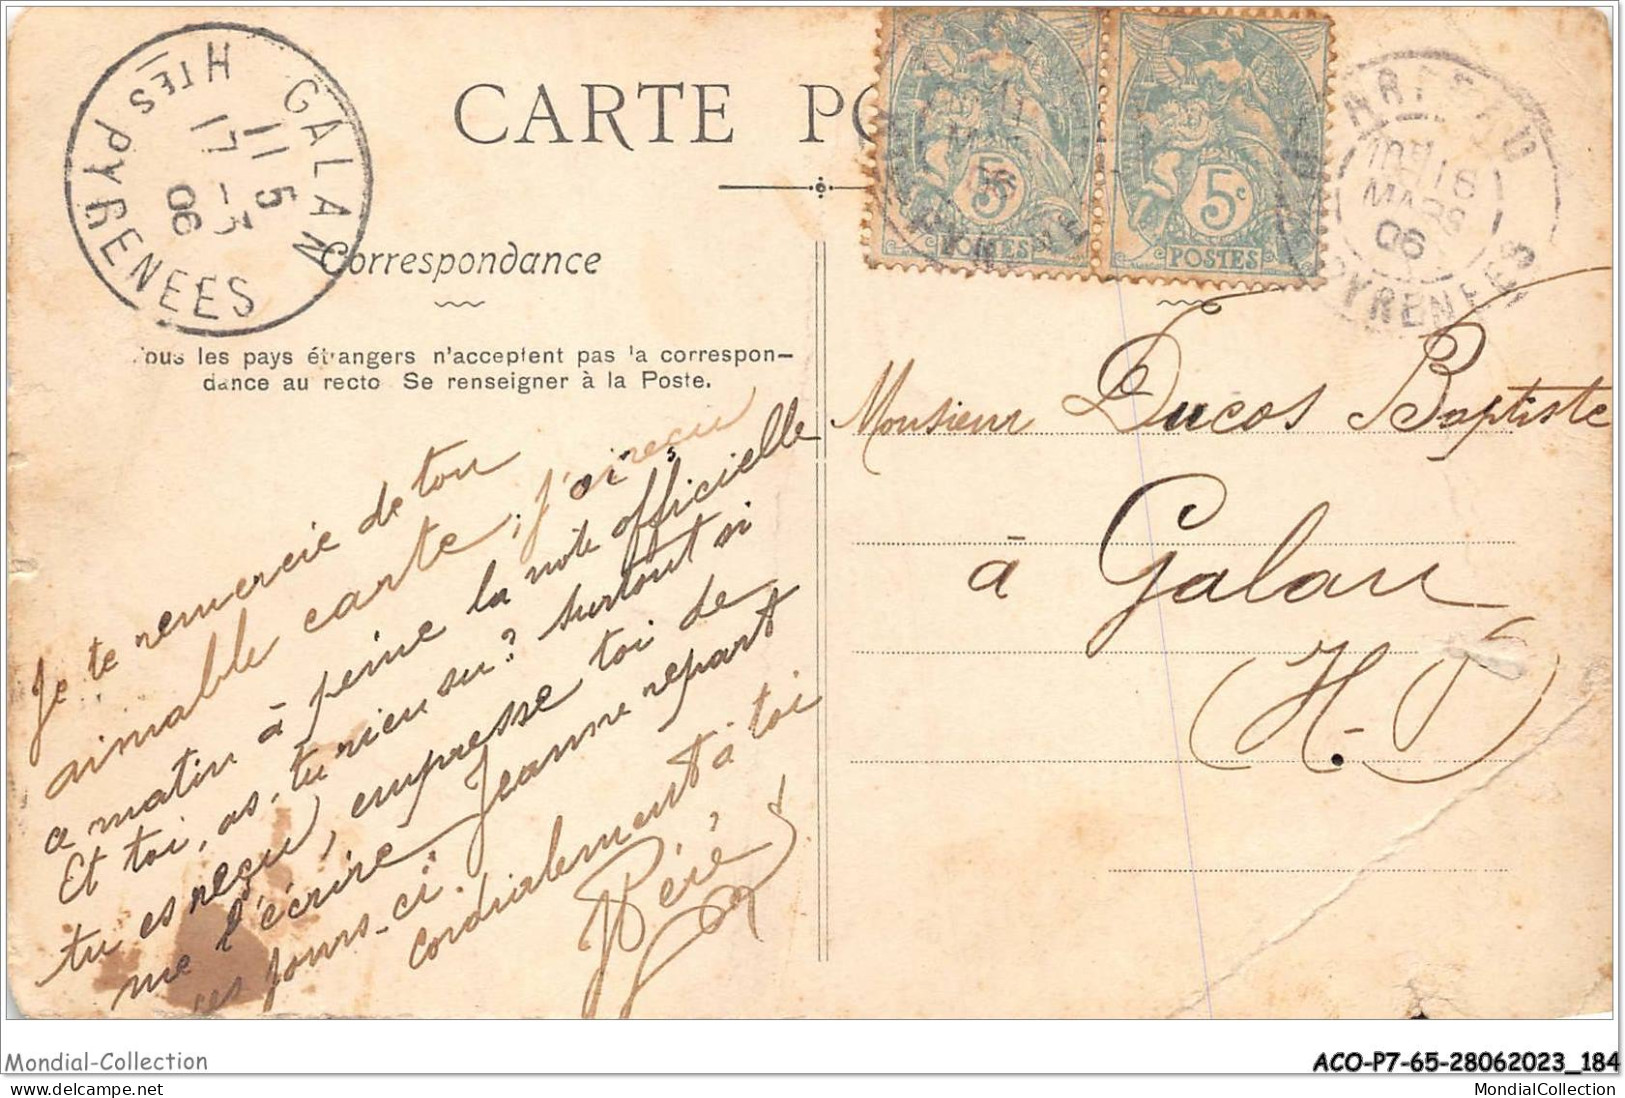 CARTE PO
GALAN
11 5
17 -3
06
HTES PYRENEES
5c
POSTES
5c
POSTES
18
MARS
06
PYRENEES
Correspondance
Tous les pays étrangers n'acceptent pas la correspon-
dance au recto Se renseigner à la Poste.
Je te remercie de ton
aimable carte, j'ai reçu
ce matin à peine la note officielle
Et toi, as-tu rien su? surtout si
tu es reçu, empresse toi de
me l'écrire Jeanne repart
ces jours-ci.
cordialement à toi
Monsieur Ducos Baptiste
à Galan
(H.-P)
Mondial-Collection
ACO-P7-65-28062023_184
MondialCollection